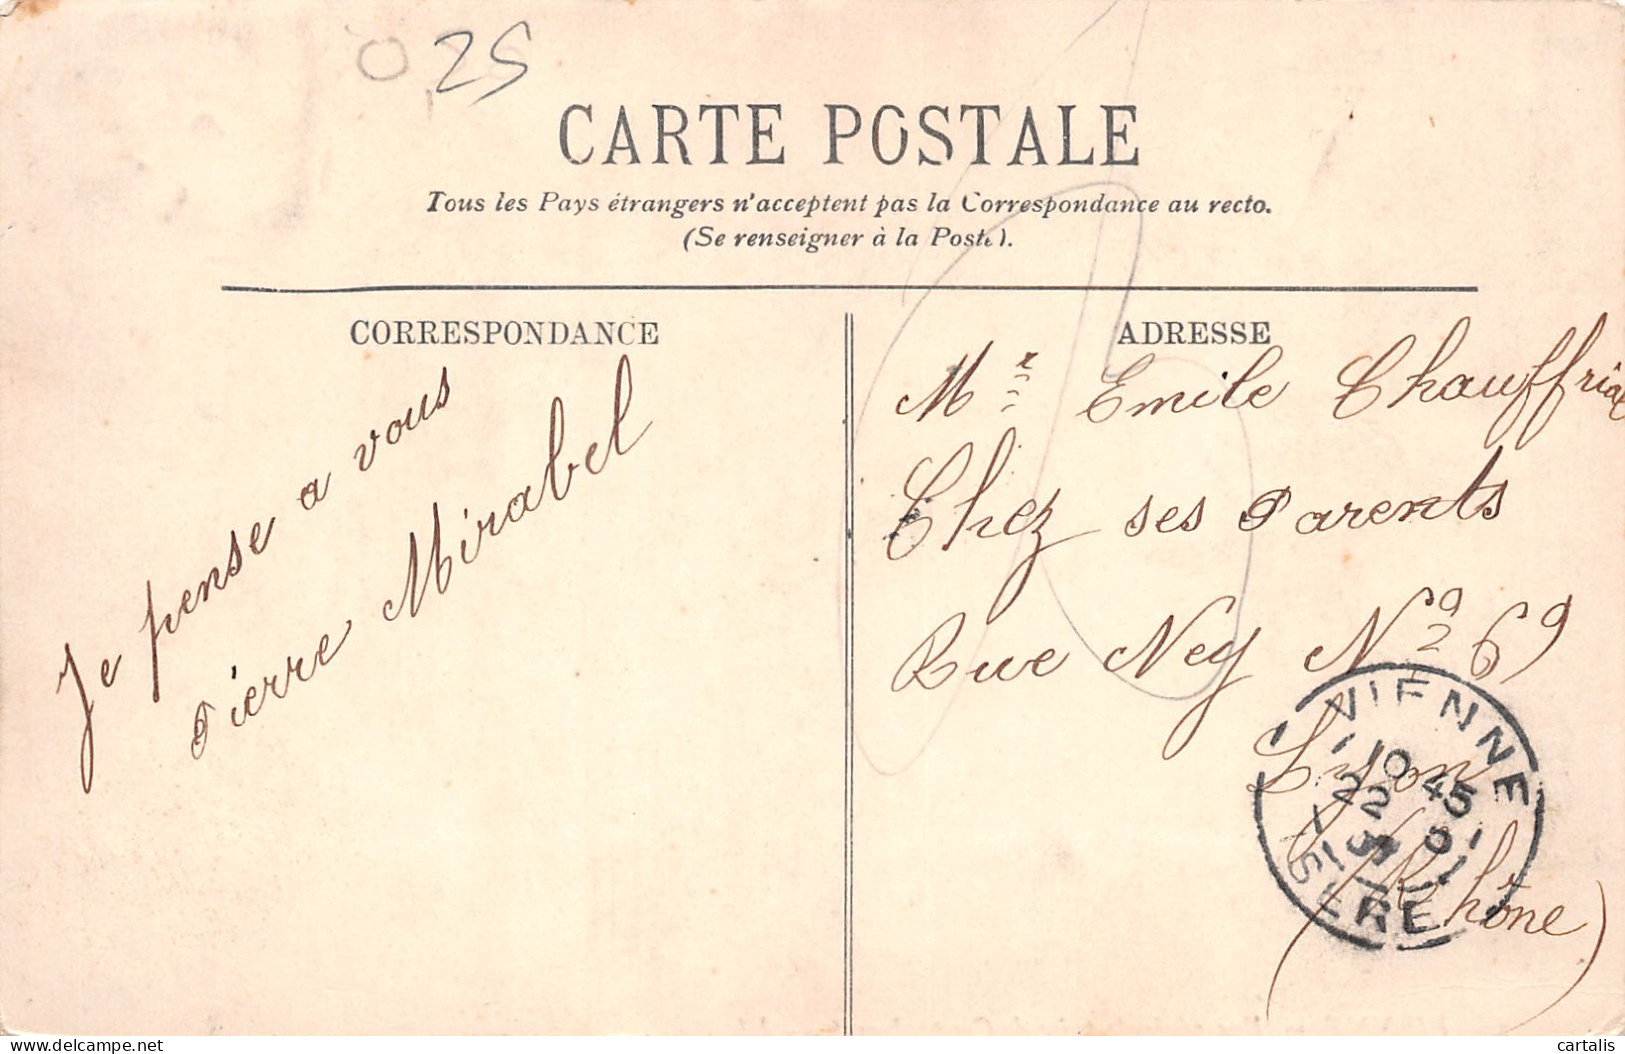 0,25
CARTE POSTALE
Tous les Pays étrangers n'acceptent pas la Correspondance au recto.
(Se renseigner à la Poste).
CORRESPONDANCE
Je pense a vous
Pierre Mirabel
ADRESSE
Mr Emile Chauffriat
Chez ses Parents
Rue Ney No 69
Lyon
(Rhône)
VIENNE
10 45
22
ISERE
delcampe.net
cartalis